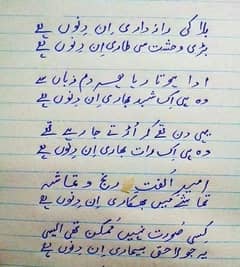 بلا کی رازداری ان دنوں ہے
بڑی وحشت سی طاری ان دنوں ہے
ادا ہوتا رہا جسم زباں سے
وہ ہی اک شہد بھاری ان دنوں ہے
یہی دن تھے کہ اڑتے جا رہے تھے
وہ ہی اک رات بھاری ان دنوں ہے
امید الفت رنج و تماشہ
تماشے میں بھکاری ان دنوں ہے
کسی صورت نہیں ممکن تھی ایسی
یہ جو لاحق بیماری ان دنوں ہے